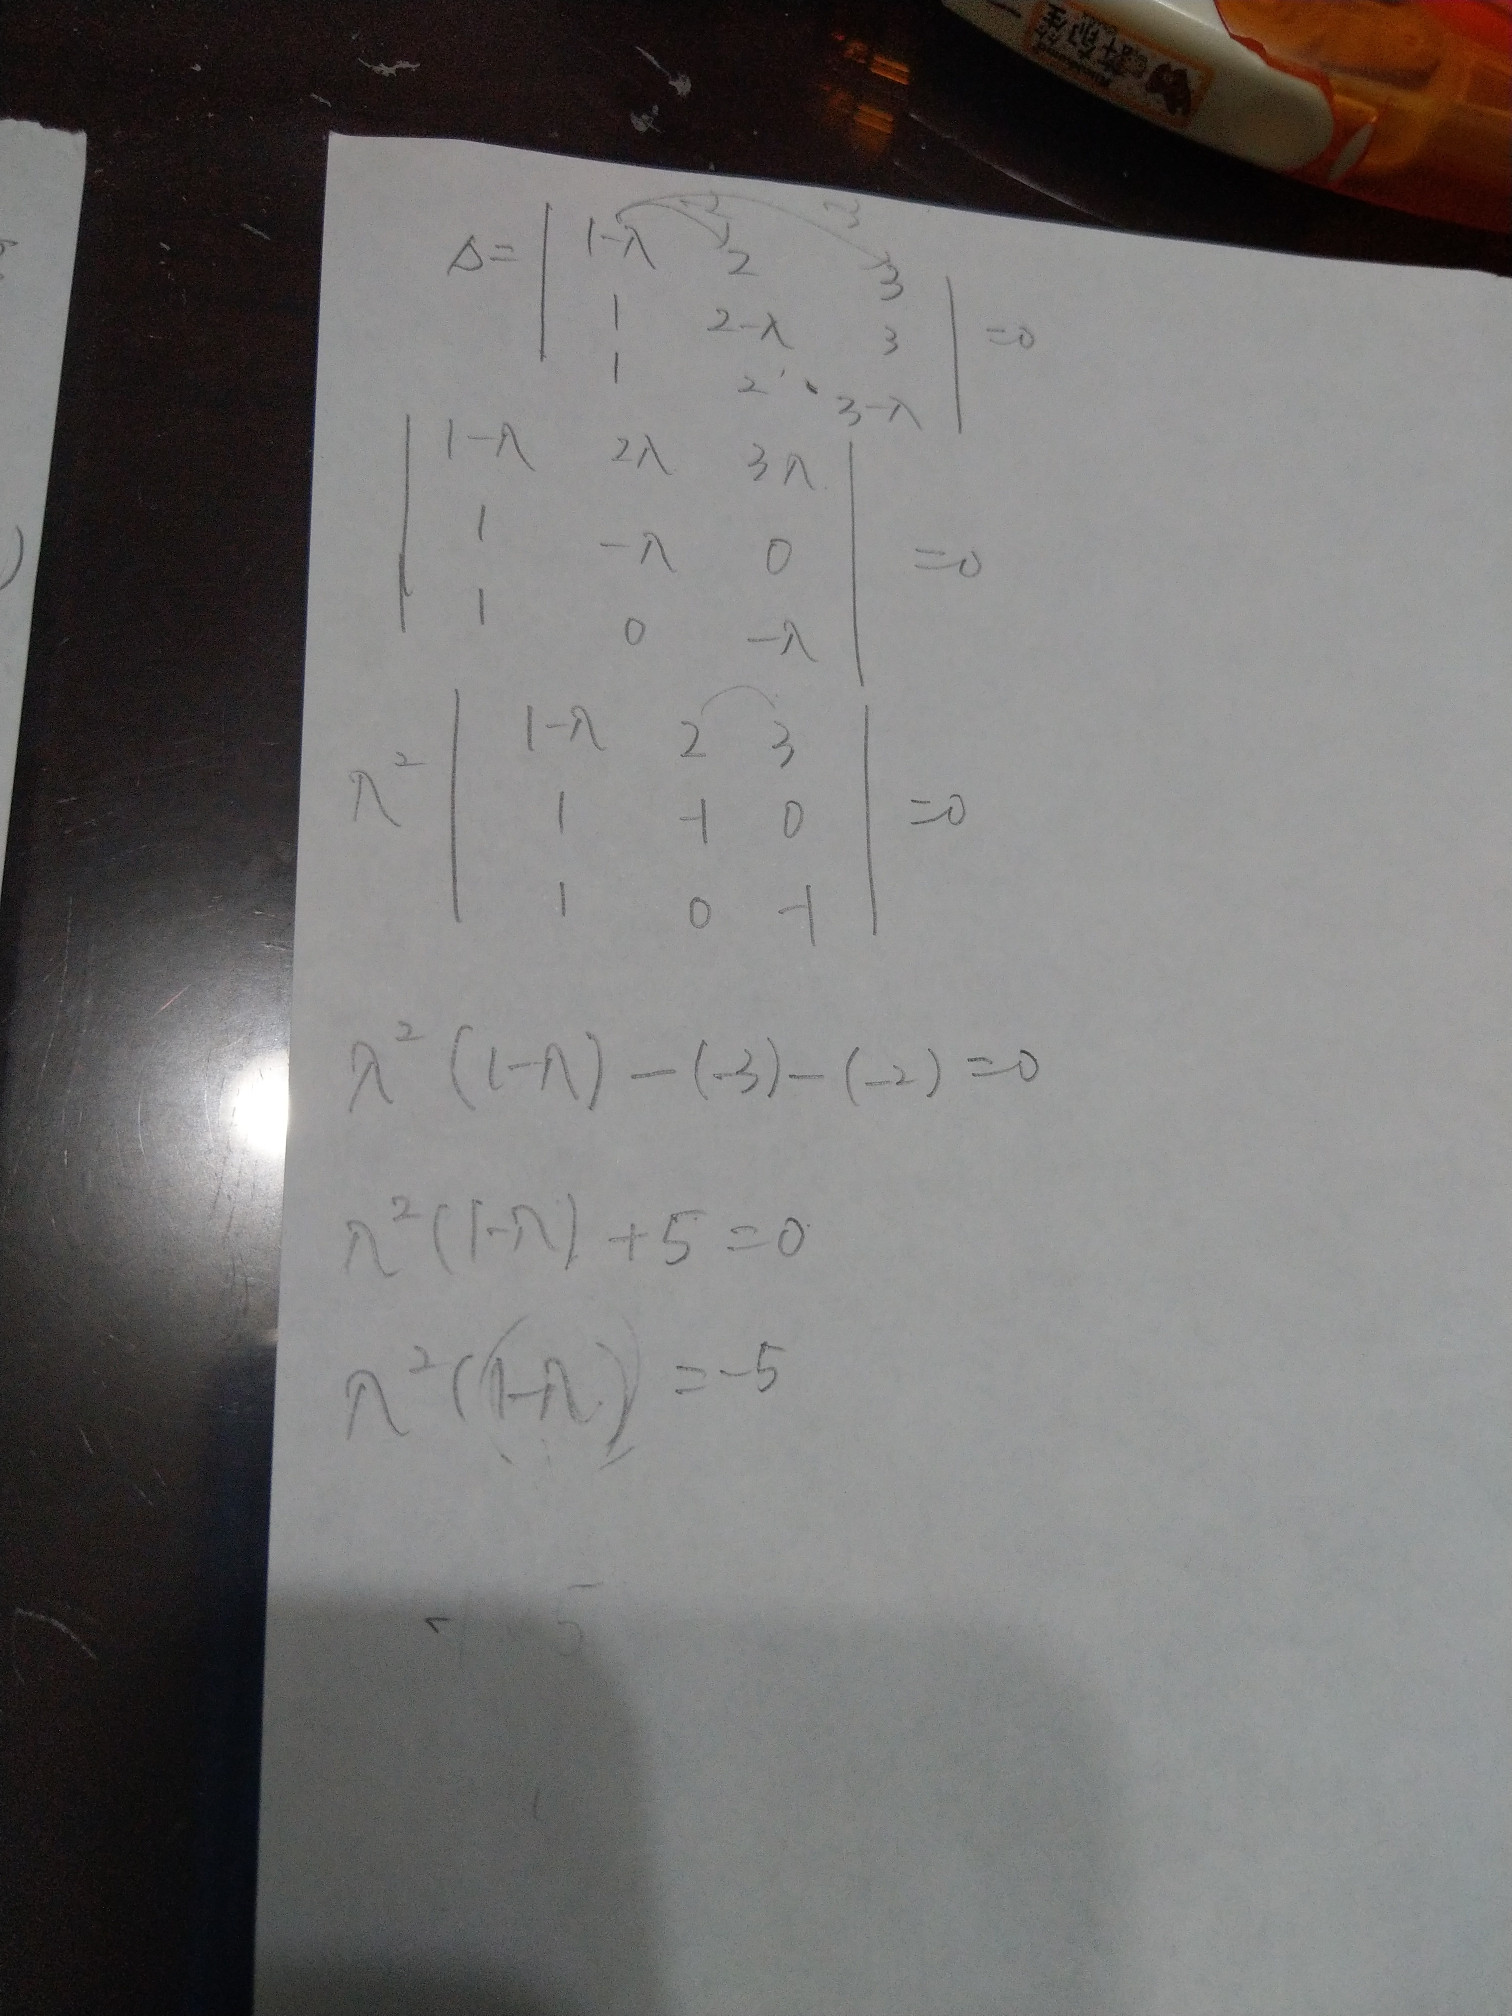 Δ= | 1-λ 2 3 |
| 1 2-λ 3 | =0
| 1 2 3-λ |
| 1-λ 2λ 3λ |
| 1 -λ 0 | =0
| 1 0 -λ |
| 1-λ 2 3 |
λ² | 1 -1 0 | =0
| 1 0 -1 |
λ² (1-λ) - (-3) - (-2) =0
λ² (1-λ) +5 =0
λ² (1-λ) =-5